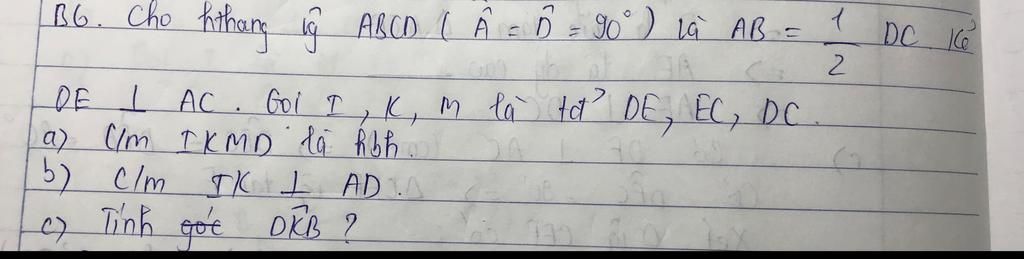 B6. Cho hthang vg ABCD ( Â = D̂ = 90° ) là AB = 1/2 DC Kẻ
DE ⊥ AC. Gọi I, K, M là tđ² DE, EC, DC.
a) C/m IKMD là hbh.
b) C/m IK ⊥ AD.
c) Tính góc DK̂B ?